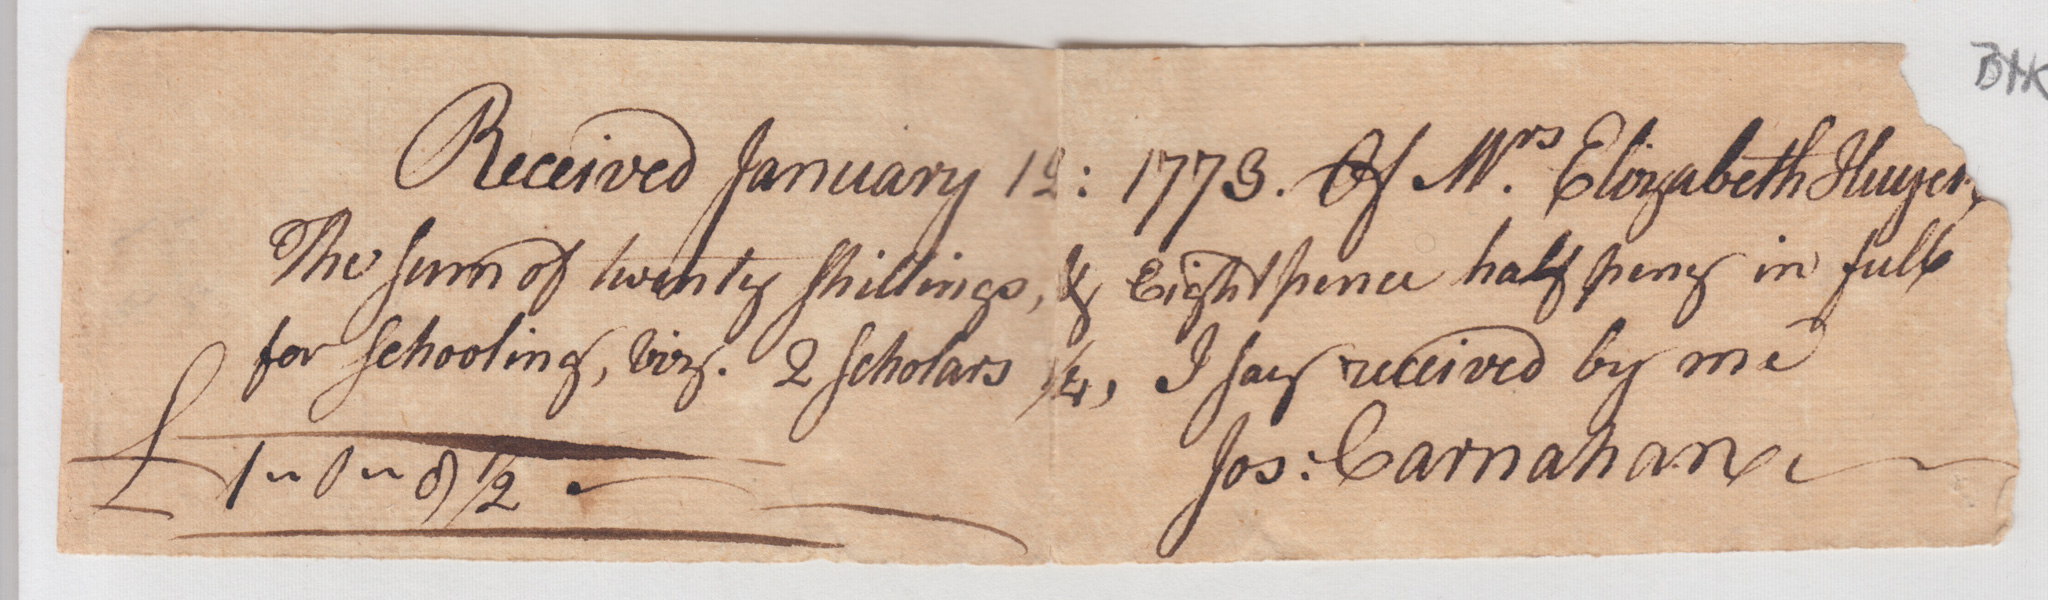 Received January 12: 1773. Of Mrs. Elizabeth
The sum of twenty shillings, & Eight pence half peny in full
for schooling, viz. 2 scholars 1/4, I say received by me
Jos: Carnahan
£ 1 ~ 0 ~ 8 1/2